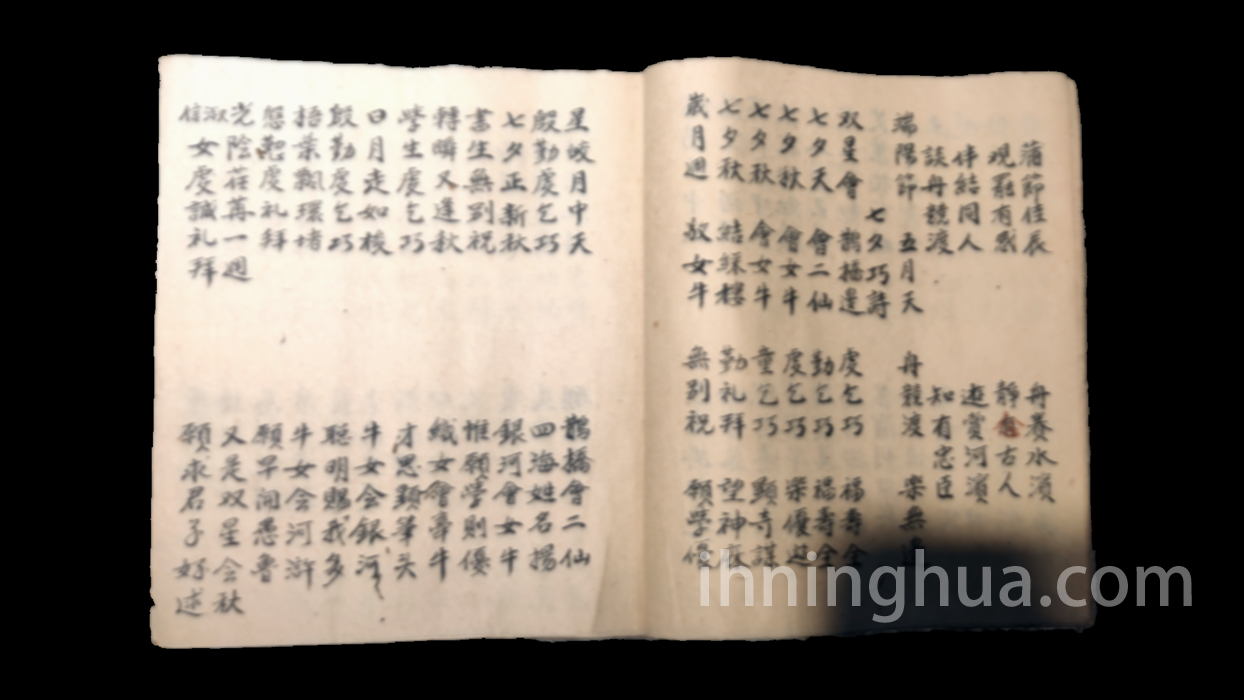 蒲節佳辰 舟賽水濱
观罷有感 靜念古人
伴結同人 遊賞河濱
談舟競渡 知有忠臣
端陽節 五月天 舟競渡 樂無邊
七夕巧詩
双星會 鵲橋邊 虔乞巧 福壽全
七夕天 會二仙 勤乞巧 福壽全
七夕秋 會女牛 虔乞巧 樂優遊
七夕秋 會女牛 童乞巧 顯奇謀
七夕秋 結綵樓 勤礼拜 望神庥
歲月週 敘女牛 無别祝 願學優
星皎月中天 鵲橋會二仙
殷勤虔乞巧 四海姓名揚
七夕正新秋 銀河會女牛
書生無别祝 惟願學則優
轉瞬又逢秋 織女會牽牛
學生虔乞巧 才思顕筆头
日月走如梭 牛女会銀河
殷勤虔乞巧 聰明賜我多
梧葉飄環堵 牛女会河滸
虔礼拜 願早開愚魯
光陰荏苒一週 又是双星会秋
信淑女虔誠礼拜 願求君子好逑
ihninghua.com